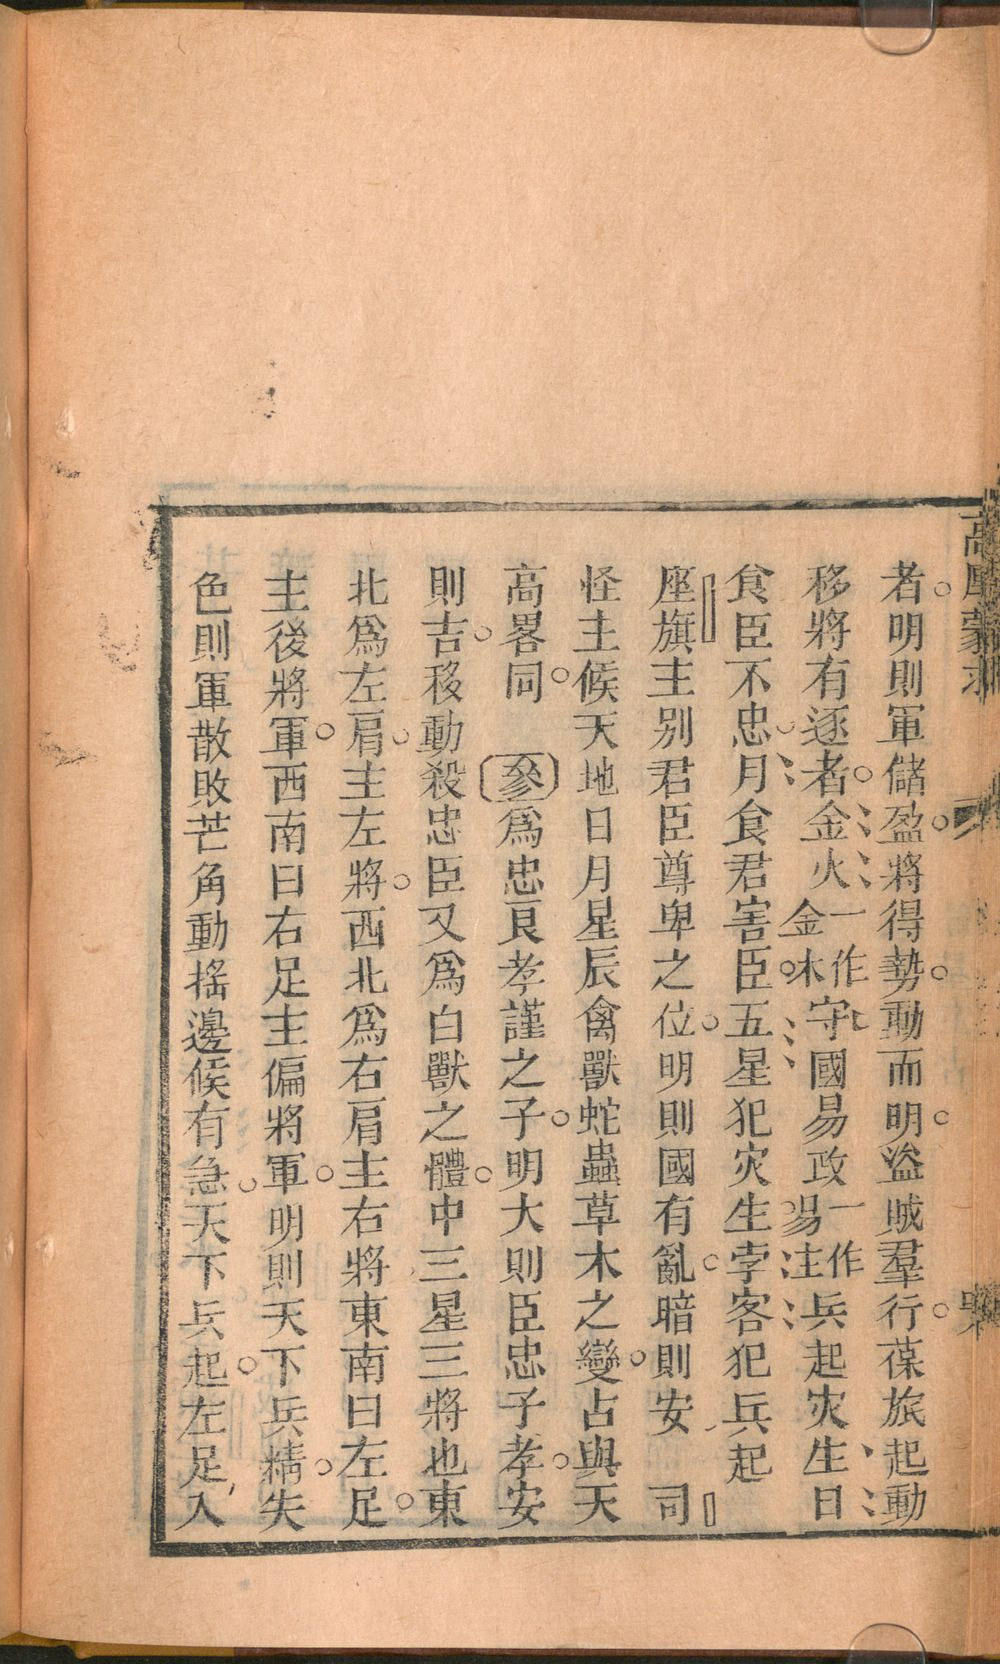 者明則軍儲盈將得勢動而明盜賊羣行葆旅起動
移將有逐者金火一作金木守國易政一作易主兵起灾生日
食臣不忠月食君害臣五星犯灾生孛客犯兵起
座旗主別君臣尊卑之位明則國有亂暗則安 司
怪主候天地日月星辰禽獸蛇蟲草木之變占與天
高畧同 參爲忠良孝謹之子明大則臣忠子孝安
則吉移動殺忠臣又爲白獸之體中三星三將也東
北爲左肩主左將西北爲右肩主右將東南曰左足
主後將軍西南曰右足主偏將軍明則天下兵精失
色則軍散敗芒角動搖邊候有急天下兵起左足入